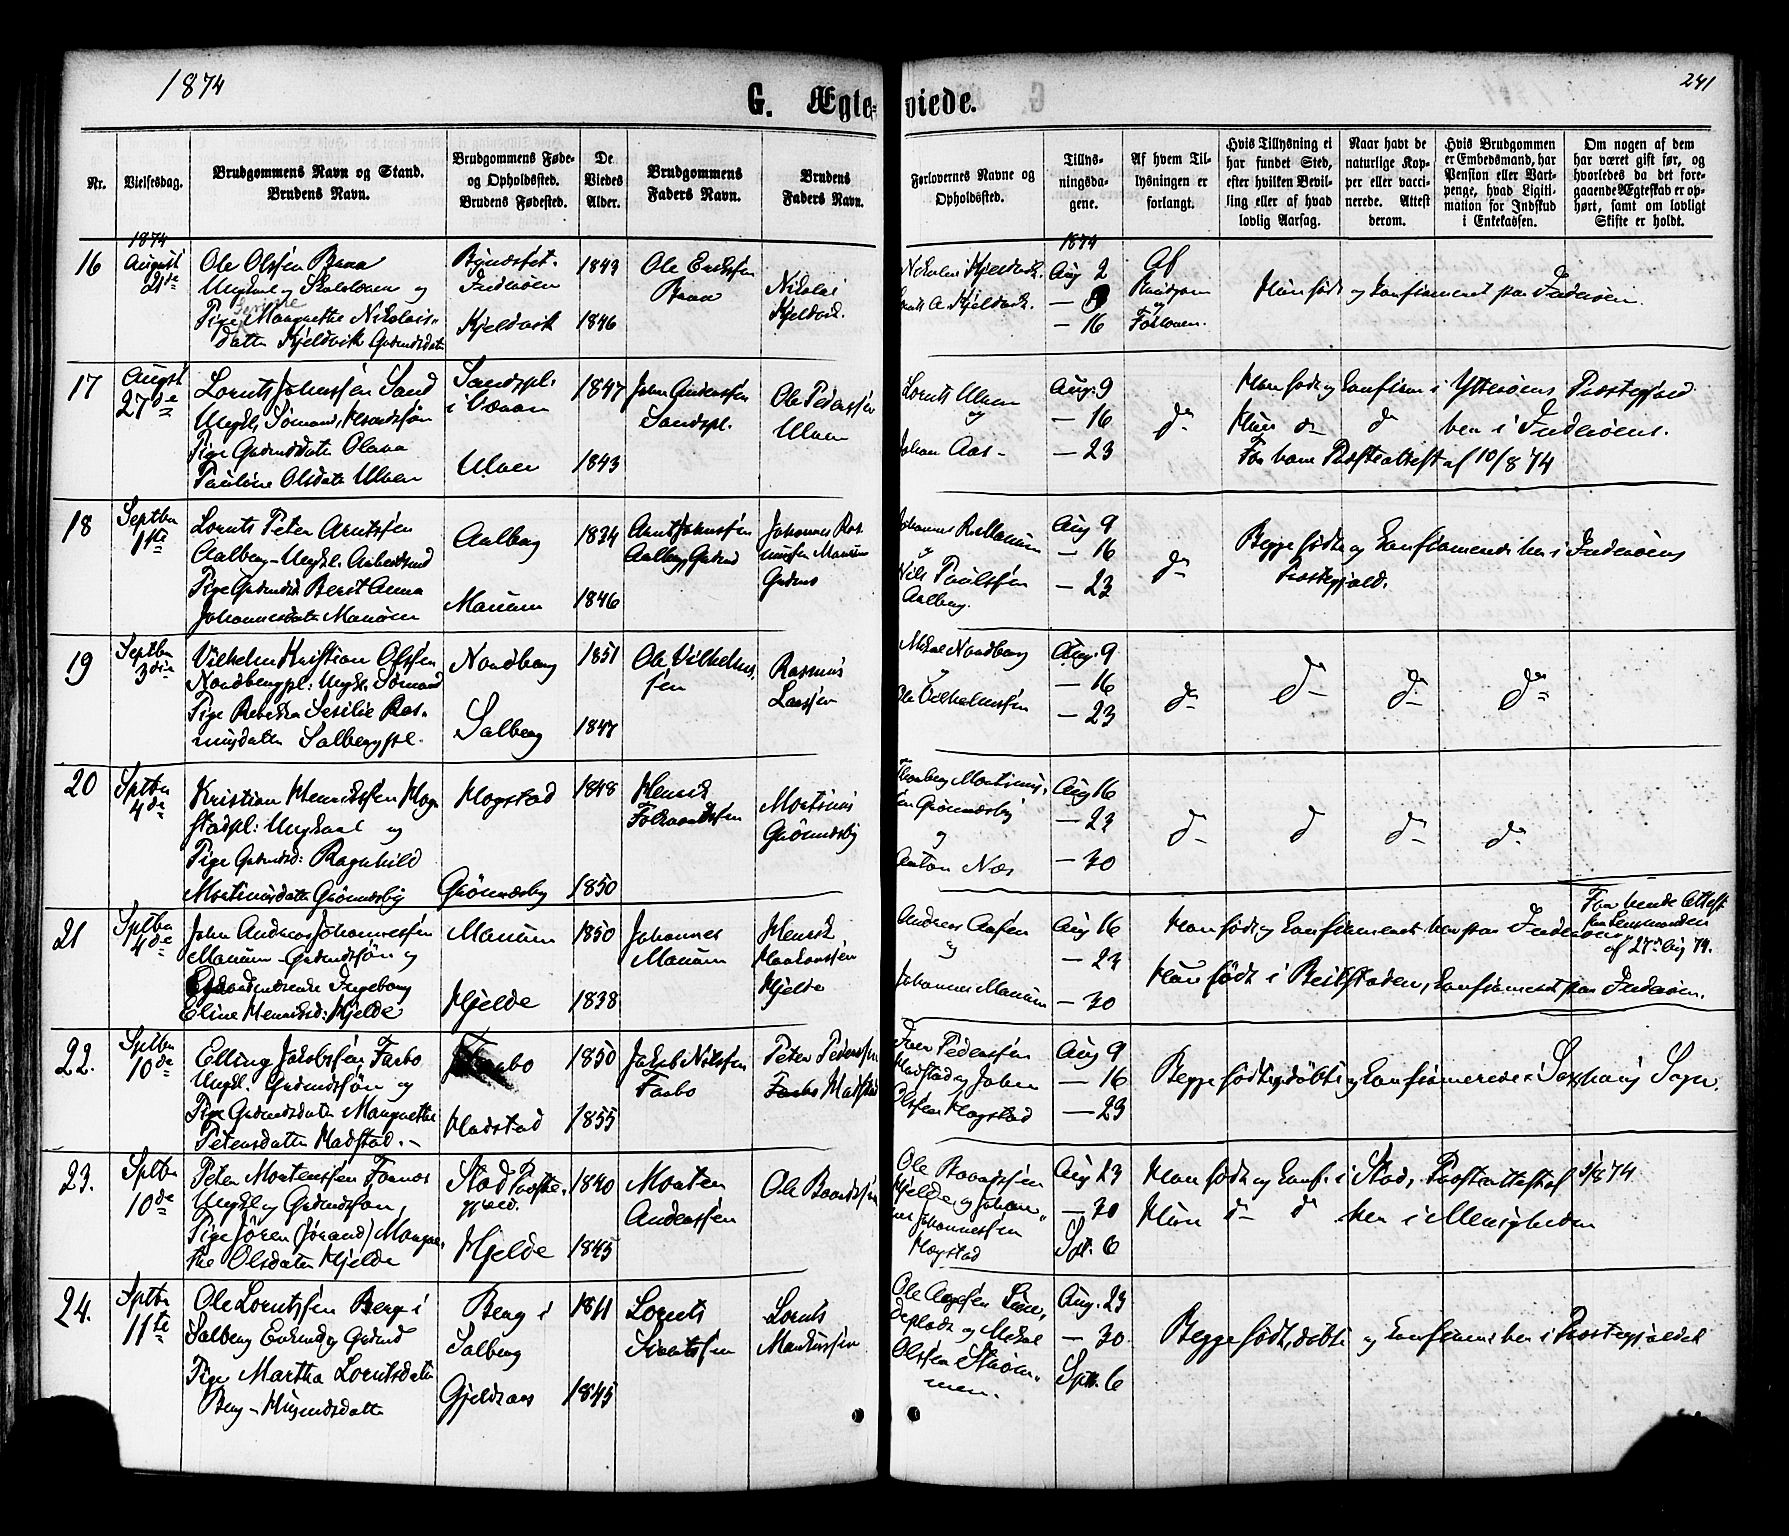 1874
241
G. Ægte-
viede.
Nr.
Vielsesdag.
Brudgommens Navn og Stand.
Brudens Navn.
Brudgommens Føde-
og Opholdssted.
Brudens Fødested.
De
Viedes
Alder.
Brudgommens
Faders Navn.
Brudens
Faders Navn.
Forlovernes Navne og
Opholdssted.
Tillys-
ningsda-
gene.
Af hvem Til-
lysningen er
forlangt.
Hvis Tillysning ei
har fundet Sted,
efter hvilken Bevil-
ling eller af hvad
lovlig Aarsag.
Naar havt de
naturlige Kop-
per eller vacci-
nerede. Attest
derom.
Hvis Brudgommen
er Embedsmand, har
Pension eller Vart-
penge, hvad Ligiti-
mation for Indskud
i Enkekassen.
Om nogen af dem
har været gift før, og
hvorledes da det fore-
gaaende Ægteskab er op-
hørt, samt om lovligt
Skifte er holdt.
16
1874
August
21de
Ole Olsen Braa
Ungkarl og Skolelærer og
Pige Margrethe Nikolais-
datter Kjeldvik Gdmdsdatter
Inderøen
Kjeldvik
1843
1846
Ole Eriksen
Braa
Nikolai
Kjeldvik.
Nikolai Kjeldvik.
Kjeldvik.
1874
Aug 2
— 9
— 16
Af
Brudgom
og
Forlover.
Hun født og konfirmeret paa Inderøen.
17
August
27de
Lornts Johnsen Sand
Ungkl, Sømand,
Pige Gdmdsdatter Olava
Pauline Olsdatter Ulven
Sandspl.
Ulven
1847
1843
John
Sandspl.
Ole Pedersen
Ulven
Lornts Ulven
og
Johan Aas -
Aug. 9
— 16
— 23
do
Han født og konfirm i Ytterøens Præstegjeld
Hun do do her i Inderøens.
For ham Præsteattest af 10/8 74
18
Septbr
1ste
Lornts Peter Arntsen
Aalberg - Ungkl. Arbeidsmd
Pige Gdmdsd Berit Anna
Johannesdatter Marium
Aalberg
Marium
1834
1846
Arnt Johnsen
Aalberg Gdmd
Johannes Ras
musen Marium
Gdmd
Johannes Ras Marium
og
Nils Paulsen
Aalberg.
Aug 9
— 16
— 23
do
Begge født og konfirmerede her i Inderøens
Præstegjeld.
19
Septbr
3die
Vilhelm Kristian Olsen
Nordbergpl: Ungkl. Sømand
Pige Rebekka Sesilie Ras-
musdatter Salbergpl.
Nordberg
Salberg
1851
1847
Ole Vilhelms-
sen
Rasmus
Larsen
Mikal Nordberg
og
Ole Vilhelmsen
Aug. 9
— 16
— 23
do
do
do
do
20
Sptbr
4de
Kristian Henriksen Hog
stadpl: Ungkarl og
Pige Gdmdsd: Ragnhild
Mortinusdatter Grønnesby
Hogstad
Grønnesby
1848
1850
Henrik
Mortinus
Grønnesby
Mortinus-
sen Grønnesby
og
Anton Næs
Aug 16
— 23
— 30
do
do
do
do
21
Sptbr
4de
John Andreas Johannessen
Marium - Gdmdssøn og
Ingeborg
Eline Henriksd: Hjelde
Marium
Hjelde
1850
1838
Johannes
Marium
Henrik
Haakonsen
Hjelde
Andreas Aasen
og
Johannes Marium
Aug 16
— 23
— 30
Han født og konfirmeret her paa Inderøen
Hun født i Beitstaden, konfirmeret paa Inderøen.
For hende Attest
fra Lensmanden
af 27 Aug 74.
22.
Sptbr
10de
Elling Jakobsen Farbo
Ungkl. Gdmdssøn og
Pige Gdmdsdatter Margrethe
Petersdatter Hadstad. -
Farbo
Hadstad
1850
1855
Jakob Nilsen
Farbo
Peter Pedersen
Farbo Hadstad
Iver Pedersen
Hadstad og Johan
Olsen Hogstad
Aug 9
— 16
— 23
Begge født og døbt og konfirmerede i Saxhaug Sogn.
23.
Sptbr
10de
Peter Mortensen Fornes
Ungkl og Gdmdssøn,
Pige Jøren (Jørand) Margre-
the Olsdatter Hjelde
Stod Præste-
gjeld.
Hjelde
1840
1845
Morten
Andersen
Ole Baardsen
Ole Baardsen
Hjelde og Johan-
nes Johannessen
Hogstad
Aug 23
— 30
Spt. 6
Han født og konf. i Stod, Præsteattest af 5/8 74
Hun do do her i Menigheden
24.
Sptbr
11te
Ole Lorntsen Berg i
Salberg Enkemd og Gdmd
Pige Martha Lorntsdatter
Berg - Husmdsdatter
Berg i
Salberg
Gjeldsaas
1811
1845
Lornts
Sivertsen
Lornts
Markussen
Ole Aagesen
og Mikal
Olsen Strøm-
men.
Aug. 23
— 30
Spt. 6
Begge født, døbt og konfirm: her i Præstegjeldet